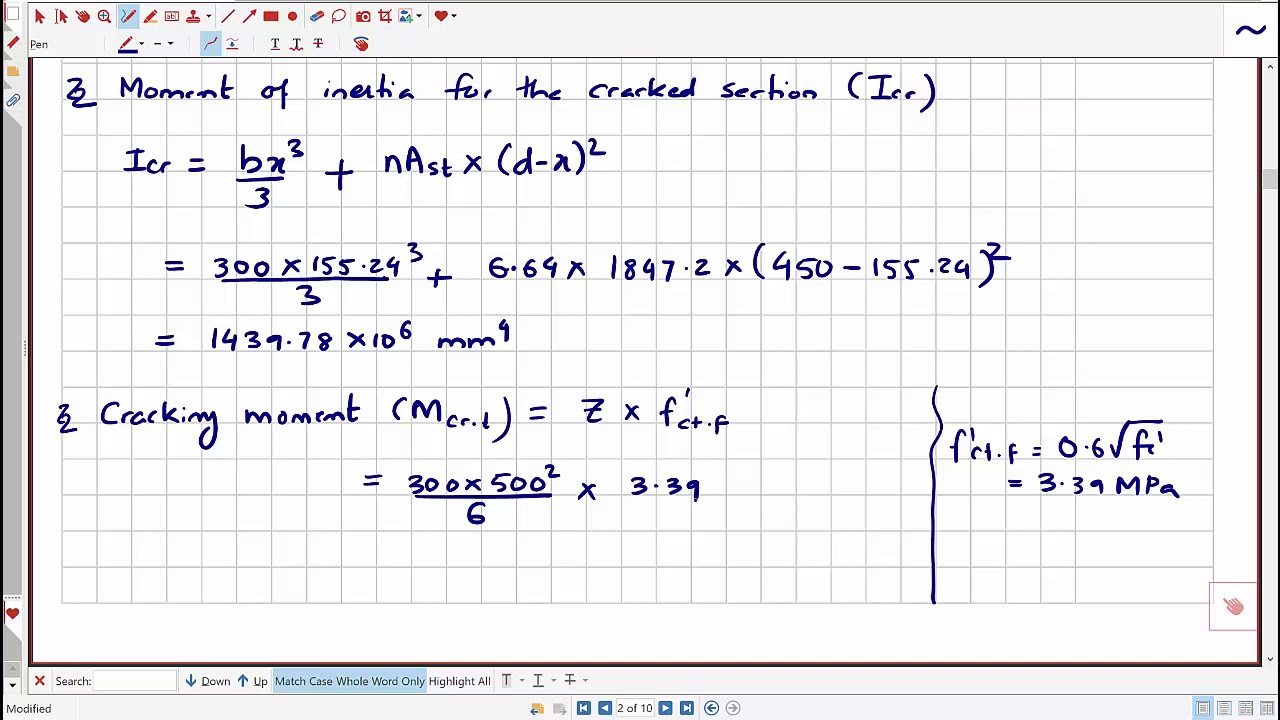 Pen
~
Moment of inertia for the cracked section (Icr)
Icr = bx³/3 + nAst × (d-x)²
= 300 × 155.24³/3 + 6.64 × 1847.2 × (450 - 155.24)²
= 1439.78 × 10⁶ mm⁴
Cracking moment (Mcr.t) = Z × f'ct.f
= 300 × 500²/6 × 3.39
f'ct.f = 0.6√fc'
= 3.39 MPa
Search: Down Up Match Case Whole Word Only Highlight All T T T
Modified 2 of 10